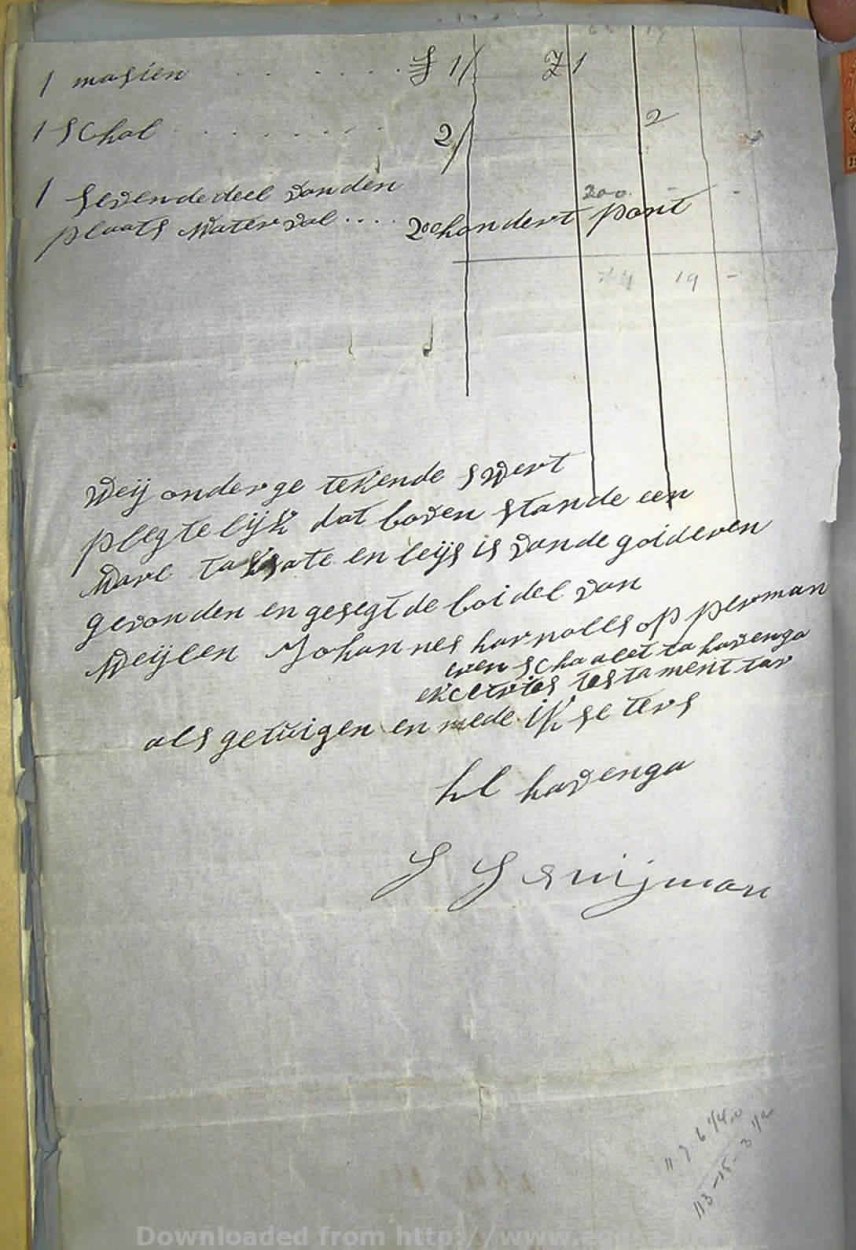 1 masien . . . . . . £ 1/ £1
1 schol . . . . . . . . 2/ 2
1 sevendedeel vanden
200 - -
plaats Waterval .... 200 hondert pont
19 -
Weij onderge tekende swert
plegtelijk dat boven stande een
Ware taksate en leijs is vande goideren
gevonden en gesegt de boidel van
Weijlen Johannes harnolls op perman
wen schaalet ta havenga
testament tar
als getuigen en mede ik se ters
hl havenga
Snijman
113-15-3 1/2
Downloaded from http://www.eggsa